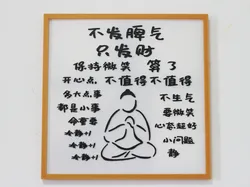 不发脾气
只发财
保持微笑 算了
开心点, 不值得不值得
多大点事
都是小事
命重要
冷静+1
冷静+1
冷静+1
不生气
要微笑
心态超好
小问题
静